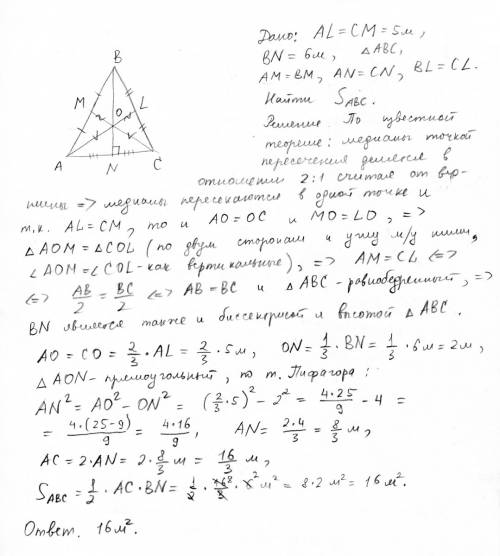 Дано: AL = CM = 5м,
BN = 6м, △ABC,
AM = BM, AN = CN, BL = CL.
Найти S_ABC.
Решение. По известной
теореме: медианы точкой
пересечения делятся в
отношении 2:1 считая от вер-
шины => медианы пересекаются в одной точке и
т.к. AL = CM, то и AO = OC и MO = LO, =>
△AOM = △COL (по двум сторонам и углу м/у ними,
∠AOM = ∠COL - как вертикальные), => AM = CL <=>
<=> AB/2 = BC/2 <=> AB = BC и △ABC - равнобедренный, =>
BN является также и биссектрисой и высотой △ABC.
AO = CO = 2/3 · AL = 2/3 · 5м, ON = 1/3 · BN = 1/3 · 6м = 2м,
△AON - прямоугольный, по т. Пифагора:
AN² = AO² - ON² = (2/3 · 5)² - 2² = 4·25/9 - 4 =
= 4·(25-9)/9 = 4·16/9, AN = 2·4/3 = 8/3 м,
AC = 2·AN = 2 · 8/3 м = 16/3 м,
S_ABC = 1/2 · AC · BN = 1/2 · 16/3 · 6 м² = 8·2 м² = 16 м².
Ответ. 16 м².
B
M
L
O
A
N
C